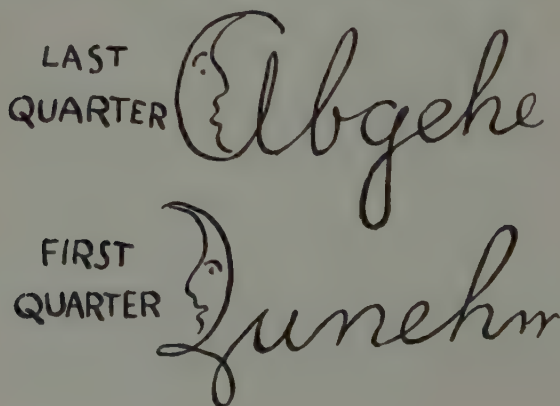 LAST
QUARTER
Abgehe
FIRST
QUARTER
Zunehm